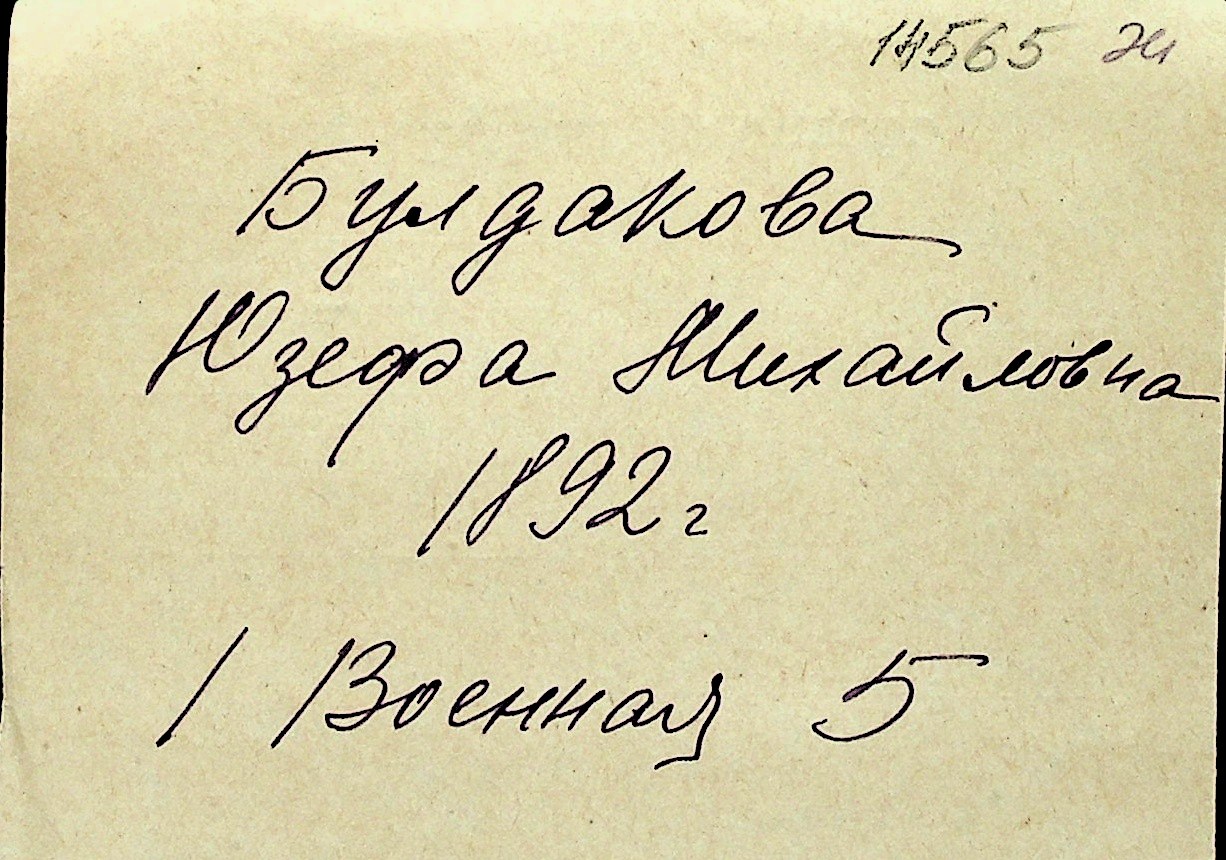 14565 эи
Булдакова
Юзефа Михайловна
1892 г
1 Военная 5